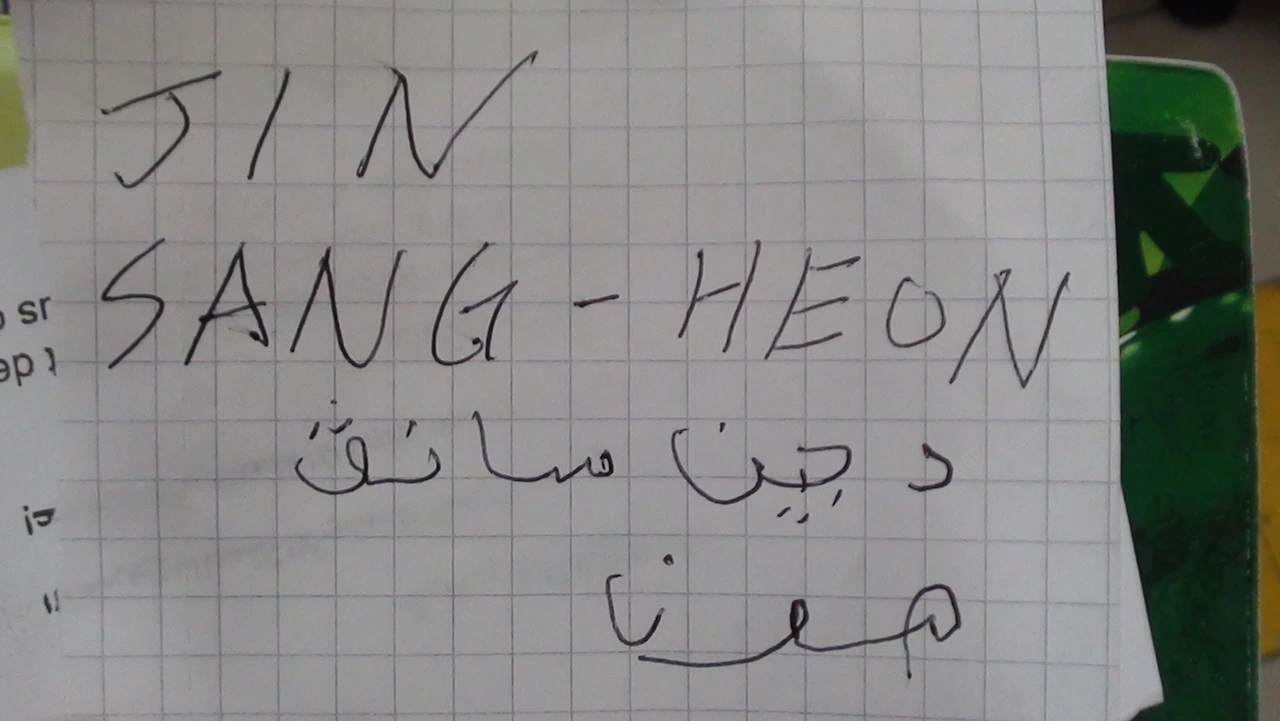 JIN
SANG-HEON
دجين سانق